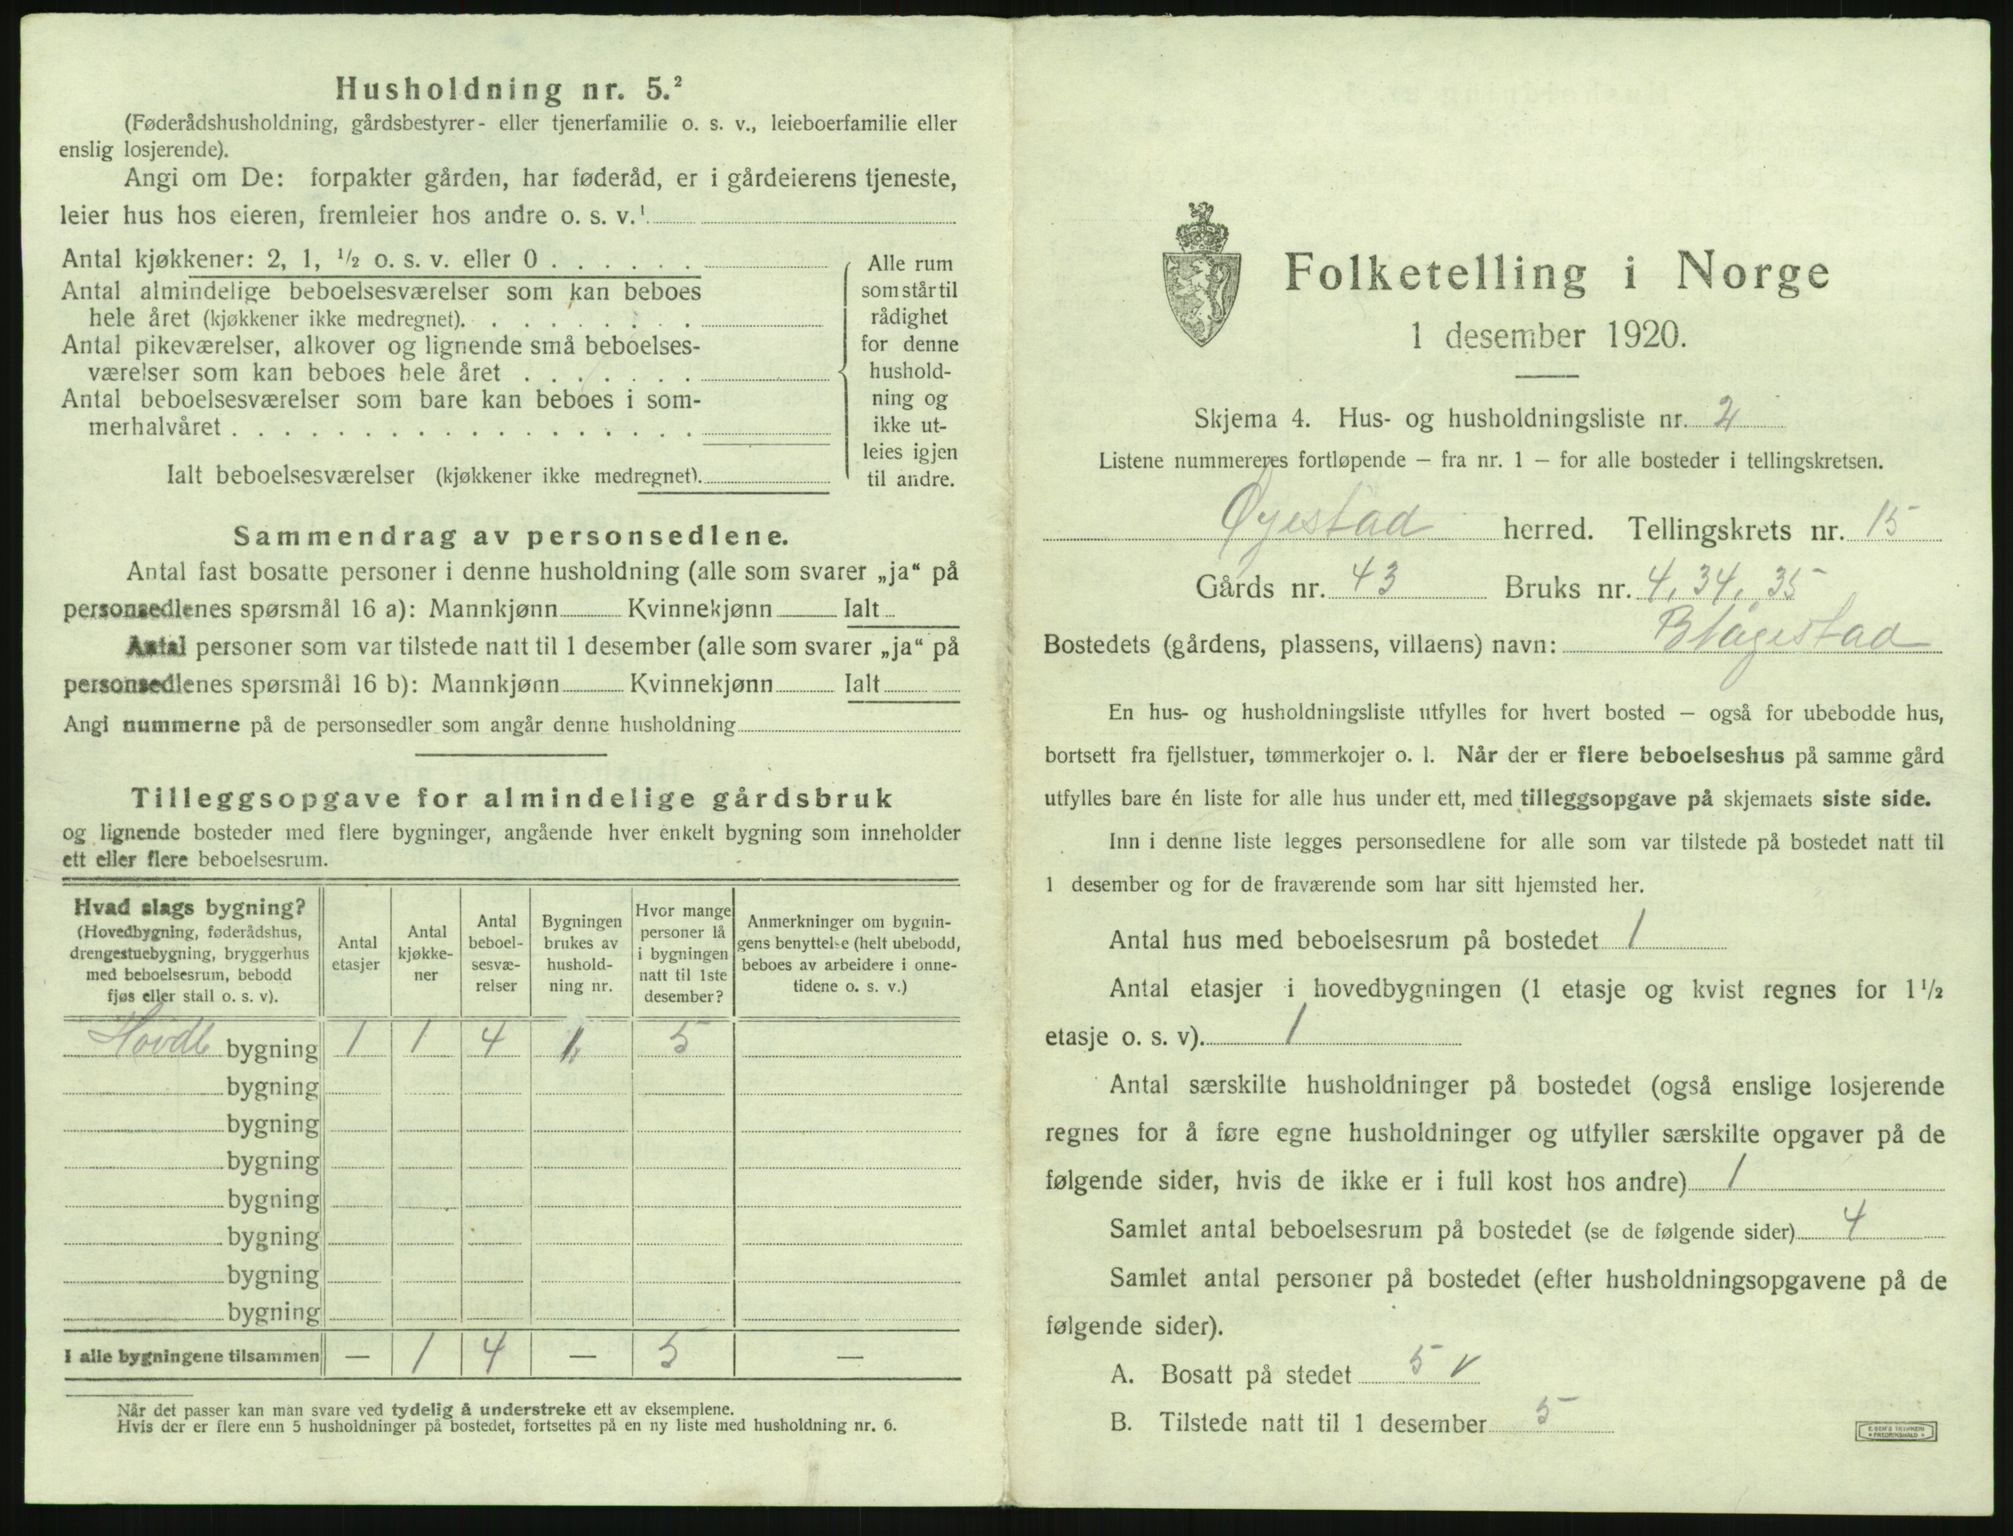 Husholdning nr. 5.²
(Føderådshusholdning, gårdsbestyrer- eller tjenerfamilie o. s. v., leieboerfamilie eller
enslig losjerende).
Angi om De: forpakter gården, har føderåd, er i gårdeierens tjeneste,
leier hus hos eieren, fremleier hos andre o. s. v.¹
Antal kjøkkener: 2, 1, ½ o. s. v. eller 0
Antal almindelige beboelsesværelser som kan beboes
hele året (kjøkkener ikke medregnet).
Antal pikeværelser, alkover og lignende små beboelses-
værelser som kan beboes hele året
Antal beboelsesværelser som bare kan beboes i som-
merhalvåret
Ialt beboelsesværelser (kjøkkener ikke medregnet).
Alle rum
som står til
rådighet
for denne
hushold-
ning og
ikke ut-
leies igjen
til andre.
Sammendrag av personsedlene.
Antal fast bosatte personer i denne husholdning (alle som svarer „ja“ på
personsedlenes spørsmål 16 a): Mannkjønn Kvinnekjønn Ialt
Antal personer som var tilstede natt til 1 desember (alle som svarer „ja“ på
personsedlenes spørsmål 16 b): Mannkjønn Kvinnekjønn Ialt
Angi nummerne på de personsedler som angår denne husholdning
Tilleggsopgave for almindelige gårdsbruk
og lignende bosteder med flere bygninger, angående hver enkelt bygning som inneholder
ett eller flere beboelsesrum.
Hvad slags bygning?
(Hovedbygning, føderådshus,
drengestuebygning, bryggerhus
med beboelsesrum, bebodd
fjøs eller stall o. s. v).
Antal
etasjer
Antal
kjøkke-
ner
Antal
beboel-
sesvæ-
relser
Bygningen
brukes av
hushold-
ning nr.
Hvor mange
personer lå
i bygningen
natt til 1ste
desember?
Anmerkninger om bygnin-
gens benyttelse (helt ubebodd,
beboes av arbeidere i onne-
tidene o. s. v.)
Hovdb bygning 1 1 4 1 5
bygning
bygning
bygning
bygning
bygning
bygning
bygning
I alle bygningene tilsammen — 1 4 — 5 —
Når det passer kan man svare ved tydelig å understreke ett av eksemplene.
Hvis der er flere enn 5 husholdninger på bostedet, fortsettes på en ny liste med husholdning nr. 6.
Folketelling i Norge
1 desember 1920.
Skjema 4. Hus- og husholdningsliste nr. 2
Listene nummereres fortløpende — fra nr. 1 — for alle bosteder i tellingskretsen.
Øyestad herred. Tellingskrets nr. 15
Gårds nr. 43 Bruks nr. 4, 34, 35
Bostedets (gårdens, plassens, villaens) navn: Blågestad
En hus- og husholdningsliste utfylles for hvert bosted — også for ubebodde hus,
bortsett fra fjellstuer, tømmerkojer o. l. Når der er flere beboelseshus på samme gård
utfylles bare én liste for alle hus under ett, med tilleggsopgave på skjemaets siste side.
Inn i denne liste legges personsedlene for alle som var tilstede på bostedet natt til
1 desember og for de fraværende som har sitt hjemsted her.
Antal hus med beboelsesrum på bostedet 1
Antal etasjer i hovedbygningen (1 etasje og kvist regnes for 1½
etasje o. s. v). 1
Antal særskilte husholdninger på bostedet (også enslige losjerende
regnes for å føre egne husholdninger og utfyller særskilte opgaver på de
følgende sider, hvis de ikke er i full kost hos andre) 1
Samlet antal beboelsesrum på bostedet (se de følgende sider) 4
Samlet antal personer på bostedet (efter husholdningsopgavene på de
følgende sider).
A. Bosatt på stedet 5 v
B. Tilstede natt til 1 desember 5